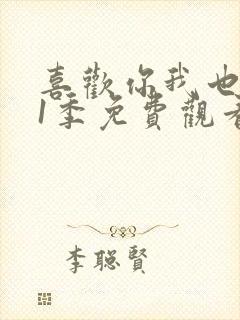 喜歡你我也
1季免費觀看
李聰賢